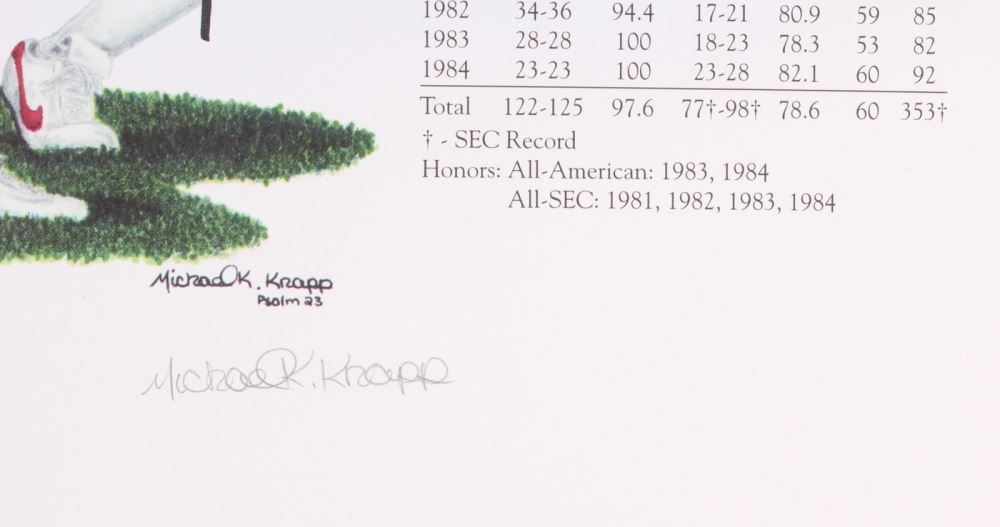 1982 34-36 94.4 17-21 80.9 59 85
1983 28-28 100 18-23 78.3 53 82
1984 23-23 100 23-28 82.1 60 92
Total 122-125 97.6 77†-98† 78.6 60 353†
† - SEC Record
Honors: All-American: 1983, 1984
All-SEC: 1981, 1982, 1983, 1984
Michael K. Knapp
Psalm 23
Michael K. Knapp